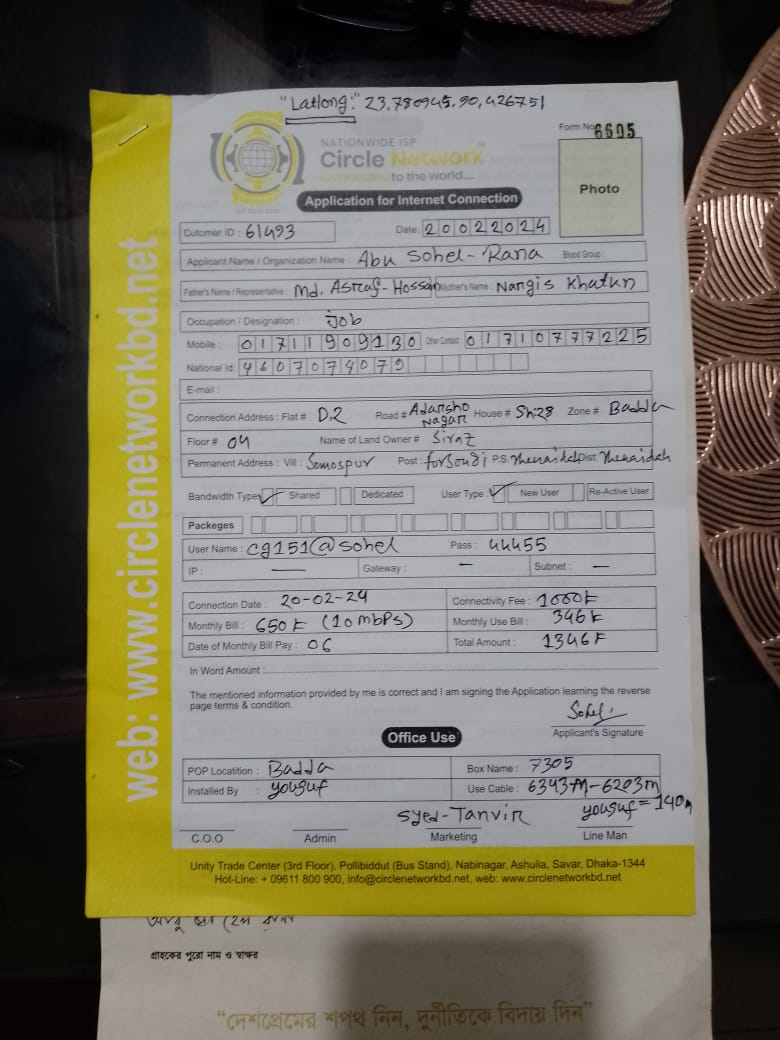 "Latlong:" 23,780945.90,426751
Form No 6605
NATIONWIDE ISP
Circle Network
Connected to the world...
Photo
Application for Internet Connection
Cutomer ID : 61493
Date: 20022024
Applicant Name / Organization Name : Abu Sohel-Rana Blood Group :
Father's Name / Representative : Md. Asraf-Hossain Mother's Name : Nargis Khatun
Occupation / Designation : job
Mobile : 01711909130 Other Contact 01710777225
National Id: 4607074079
E-mail :
Connection Address : Flat # D.2 Road # Adarsho Nagar House # Sh:28 Zone # Badda
Floor # 04 Name of Land Owner # Siraz
Permanent Address : Vill : Somospur Post : forsondi P.S. Jhenaidah Dist: Jhenaidah
Bandwidth Type ✓ Shared Dedicated User Type : ✓ New User Re-Active User
Packeges
User Name : cg151@sohel Pass : 44455
IP : — Gateway : — Subnet : —
Connection Date : 20-02-24 Connectivity Fee : 1000৳
Monthly Bill : 650৳ (10 mbPs) Monthly Use Bill : 346৳
Date of Monthly Bill Pay : 06 Total Amount : 1346৳
In Word Amount :
The mentioned information provided by me is correct and I am signing the Application learning the reverse
page terms & condition.
Sohel
Applicant's Signature
Office Use
POP Locatition : Badda Box Name : 7305
Installed By : yousuf Use Cable : 6343m-6203m
Syed-Tanvir yousuf = 140m
C.O.O Admin Marketing Line Man
Unity Trade Center (3rd Floor), Pollibiddut (Bus Stand), Nabinagar, Ashulia, Savar, Dhaka-1344
Hot-Line: + 09611 800 900, info@circlenetworkbd.net, web: www.circlenetworkbd.net
web: www.circlenetworkbd.net
গ্রাহকের পুরো নাম ও স্বাক্ষর
"দেশপ্রেমের শপথ নিন, দুর্নীতিকে বিদায় দিন"